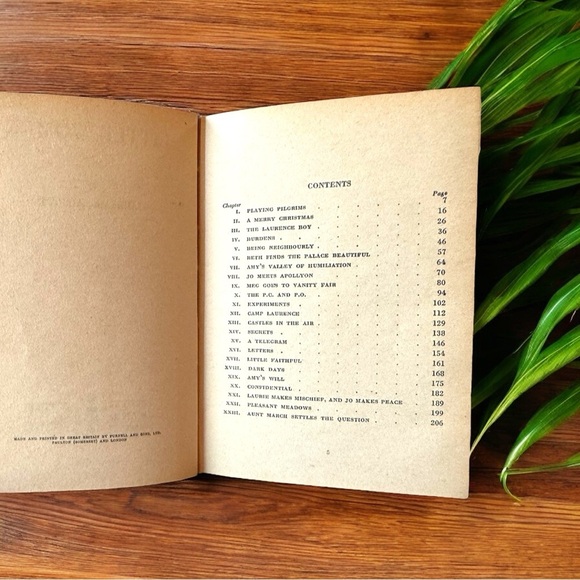 MADE AND PRINTED IN GREAT BRITAIN BY PURNELL AND SONS, LTD.
PAULTON (SOMERSET) AND LONDON
CONTENTS
Chapter Page
I. PLAYING PILGRIMS 7
II. A MERRY CHRISTMAS 16
III. THE LAURENCE BOY 26
IV. BURDENS 36
V. BEING NEIGHBOURLY 46
VI. BETH FINDS THE PALACE BEAUTIFUL 57
VII. AMY'S VALLEY OF HUMILIATION 64
VIII. JO MEETS APOLLYON 70
IX. MEG GOES TO VANITY FAIR 80
X. THE P.C. AND P.O. 94
XI. EXPERIMENTS 102
XII. CAMP LAURENCE 112
XIII. CASTLES IN THE AIR 129
XIV. SECRETS 138
XV. A TELEGRAM 146
XVI. LETTERS 154
XVII. LITTLE FAITHFUL 161
XVIII. DARK DAYS 168
XIX. AMY'S WILL 175
XX. CONFIDENTIAL 182
XXI. LAURIE MAKES MISCHIEF, AND JO MAKES PEACE 189
XXII. PLEASANT MEADOWS 199
XXIII. AUNT MARCH SETTLES THE QUESTION 206
5